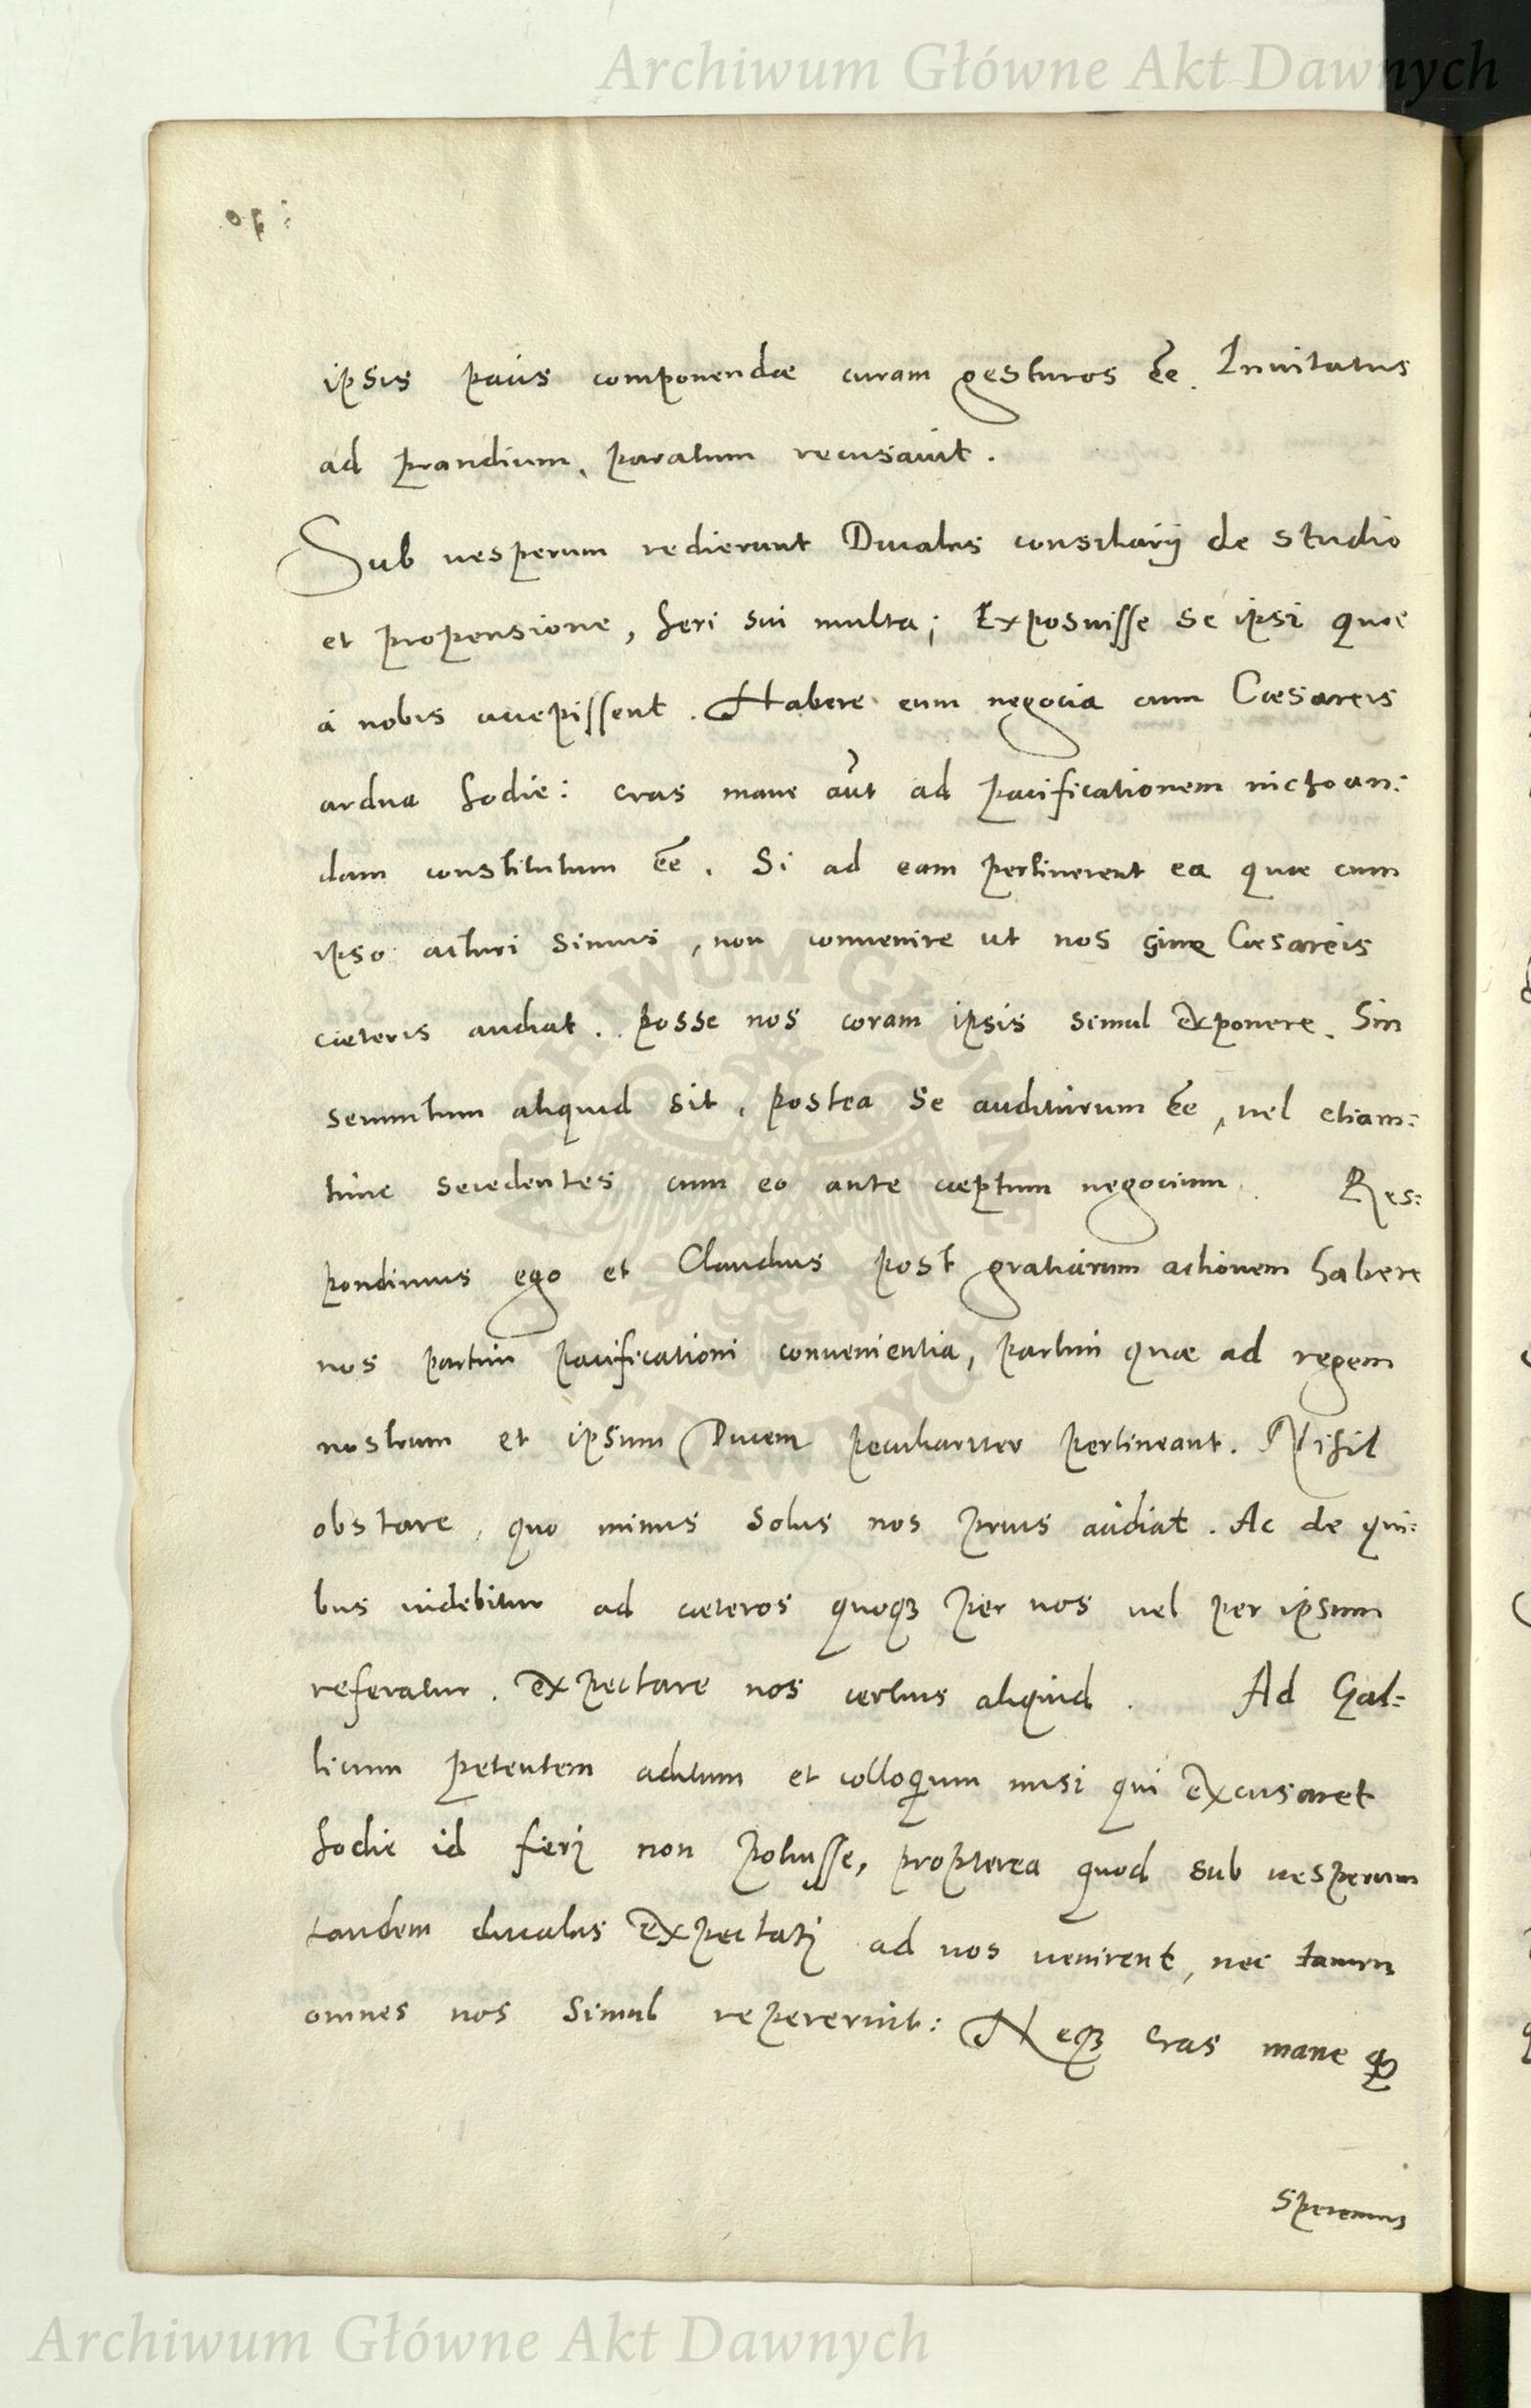 Archiwum Główne Akt Dawnych
ipsis pacis componendæ curam gesturos ee͂. Inuitatus
ad prandium, paratum recusauit.
Sub uesperum redierunt Ducales consiliarij de studio
et propensione, heri sui multa; Exposuisse se ipsi quæ
à nobis accepissent. Habere eum negocia cum Cæsareis
ardua hodie: cras mane aūt ad pacificationem inchoan:
dam constitutum ee͂. Si ad eam pertinerent ea quæ cum
ipso acturi simus, non conuenire ut nos sine Cæsareis
cæteris audiat. Posse nos coram ipsis simul exponere. Sin
seiunctum aliquid sit, postea se auditurum ee͂, uel etiam:
tunc secedentes cum eo ante cæptum negocium. Res:
pondimus ego et Claudius post gratiarum actionem habere
nos partim pacificationi conuenientia, partim quæ ad regem
nostrum et ipsum Ducem peculiariter pertineant. Nihil
obstare, quo minus solus nos prius audiat. Ac de qui:
bus uidebitur ad cæteros quoqꝫ per nos uel per ipsum
referatur. Expectare nos certius aliquid. Ad Gal:
licum petentem aditum et colloquium misi qui excusaret
hodie id fieri non potuisse, propterea quod sub uesperum
tandem ducales expectati ad nos uenirent, nec tamen
omnes nos simul repererint: Neqꝫ cras mane
speremus
ARCHIWUM GŁÓWNE AKT DAWNYCH
Archiwum Główne Akt Dawnych